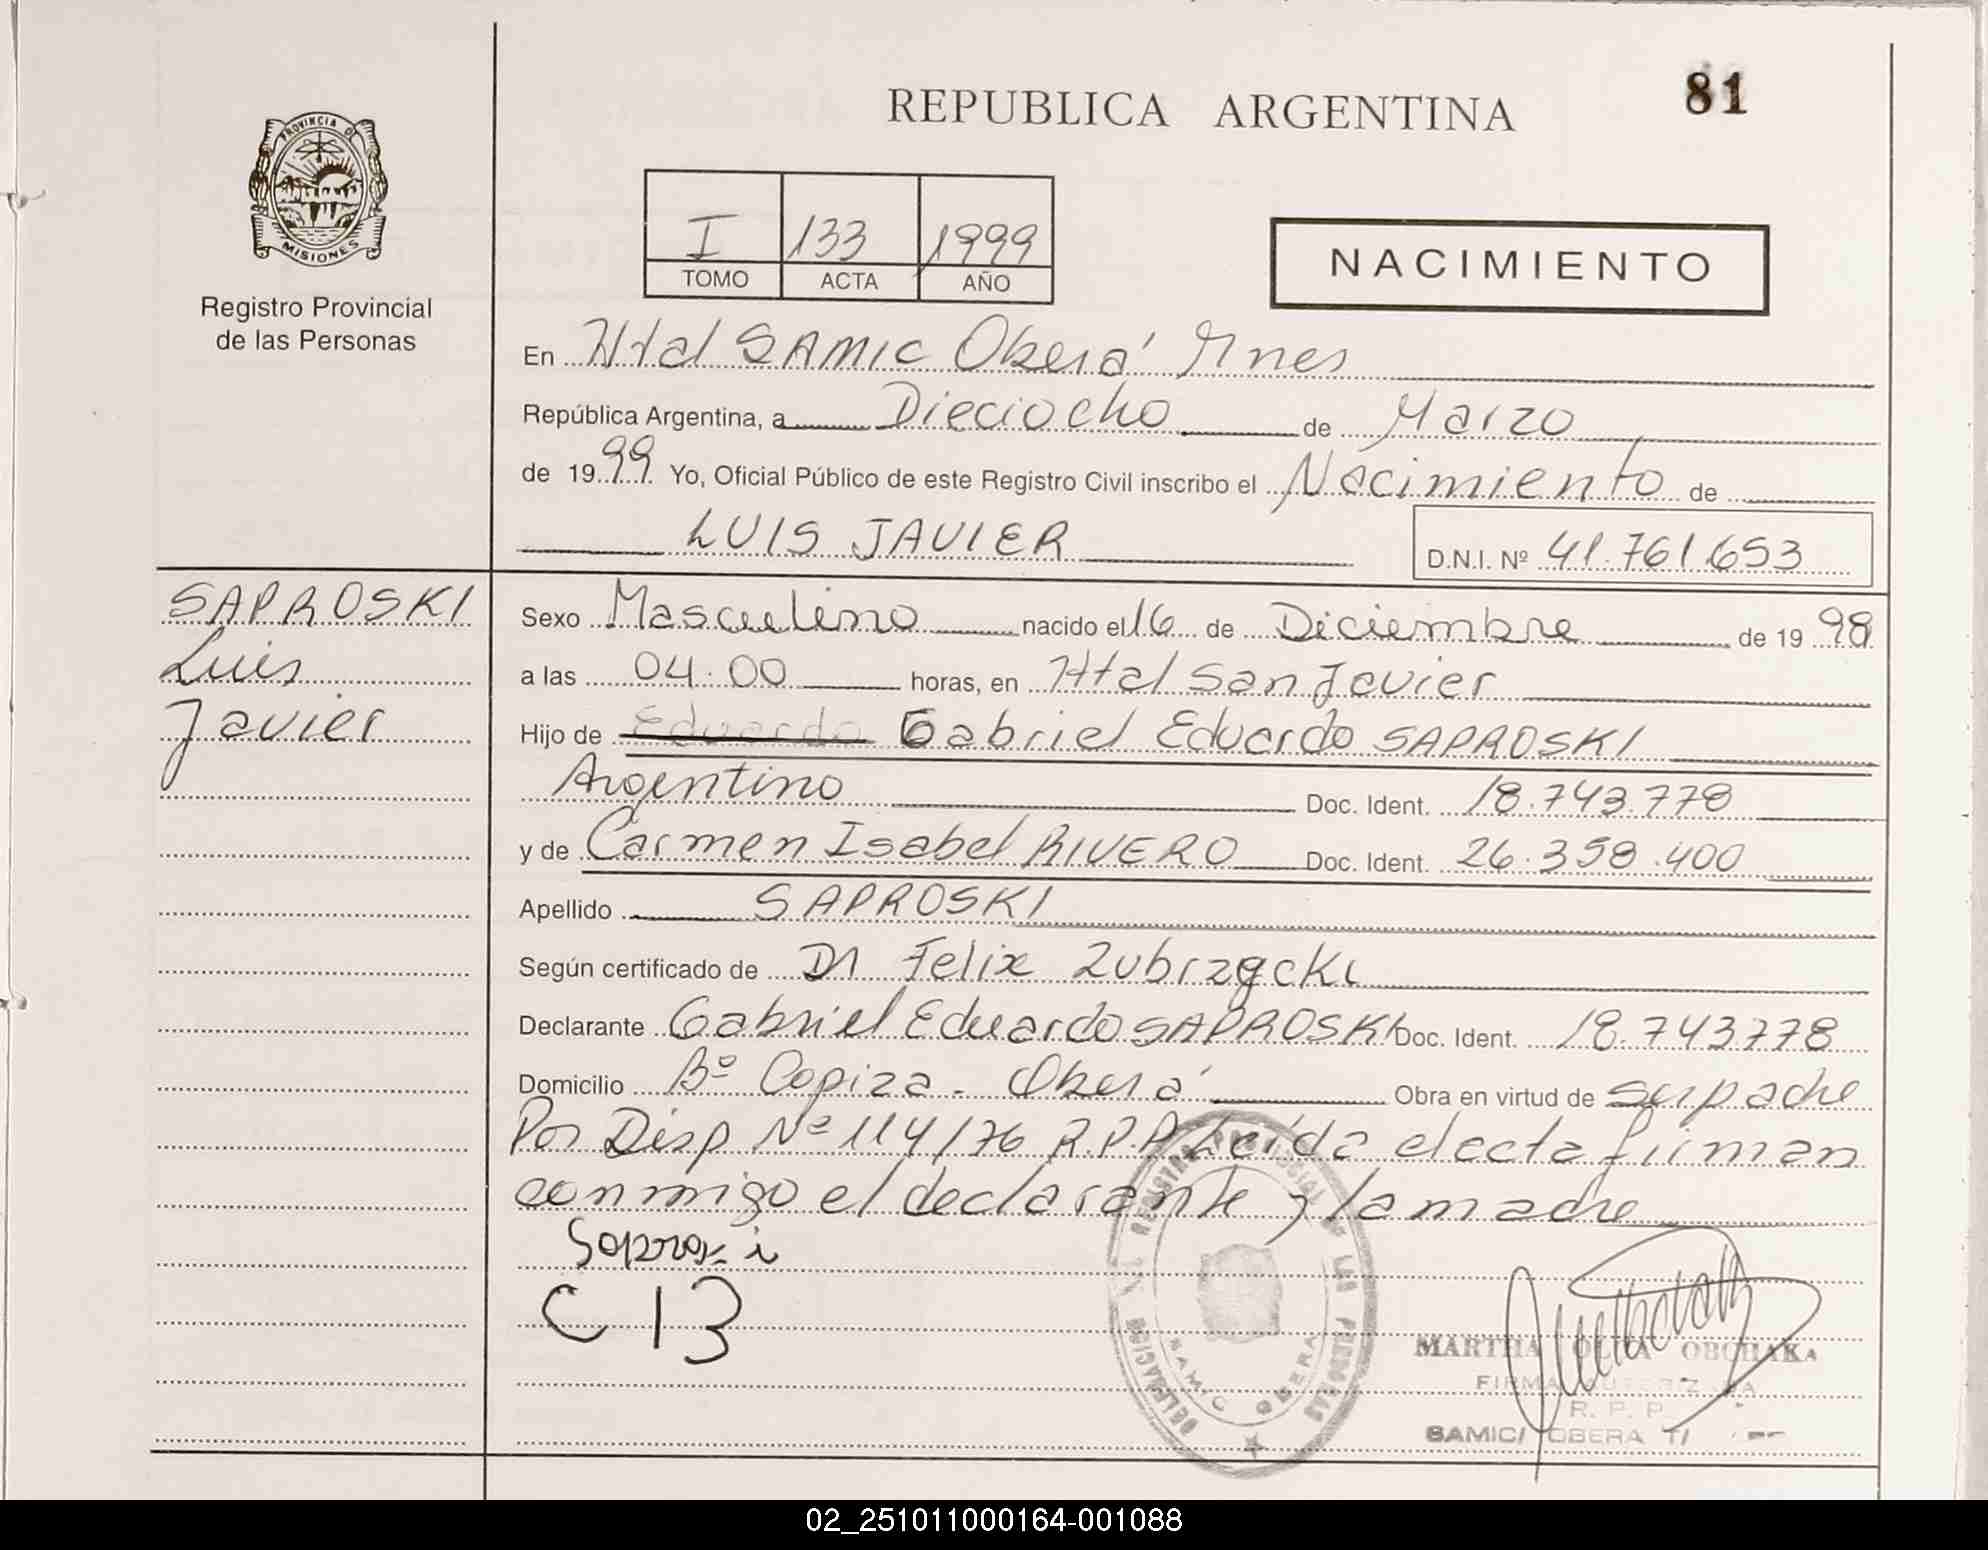 REPUBLICA ARGENTINA
81
PROVINCIA DE
MISIONES
Registro Provincial
de las Personas
I 133 1999
TOMO ACTA AÑO
NACIMIENTO
En Htal SAMIC Oberá Mnes
República Argentina, a Dieciocho de Marzo
de 1999 Yo, Oficial Público de este Registro Civil inscribo el Nacimiento de
LUIS JAVIER
D.N.I. Nº 41.761.653
SAPROSKI
Luis
Javier
Sexo Masculino nacido el 16 de Diciembre de 1998
a las 04:00 horas, en Htal San Javier
Hijo de Eduardo Gabriel Eduardo SAPROSKI
Argentino Doc. Ident. 18.743.778
y de Carmen Isabel RIVERO Doc. Ident. 26.358.400
Apellido SAPROSKI
Según certificado de Dr Felix Zubrzycki
Declarante Gabriel Eduardo SAPROSKI Doc. Ident. 18.743778
Domicilio Bº Copiza - Oberá Obra en virtud de ser padre
Por Disp Nº 114/76 R.P.P. Leída el acta firman
conmigo el declarante y la madre
C 13
DELEGACION REGISTRO PROVINCIAL DE LAS PERSONAS
SAMIC OBERA
MARTHA OLGA OBCHAKA
R. P. P.
SAMIC OBERA
02_251011000164-001088